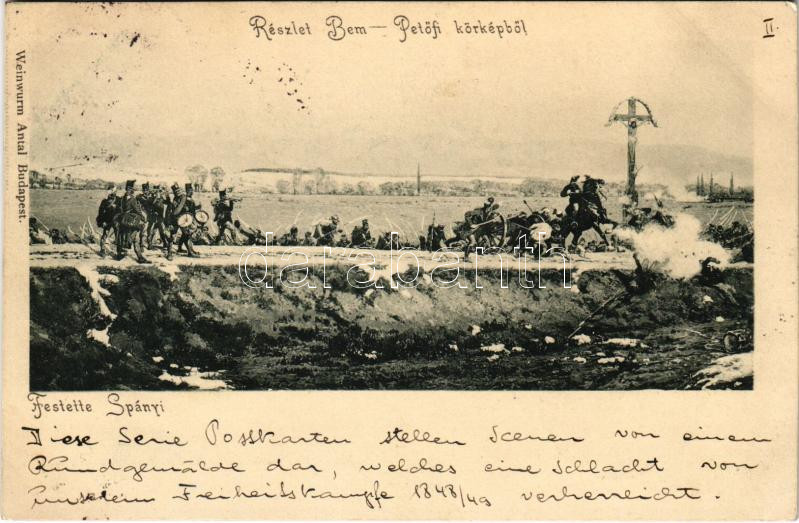 Részlet Bem — Petőfi körképből
II.
Weinwurm Antal Budapest.
darabanth
Festette Spányi
Diese Serie Postkarten stellen Scenen von einem
Rundgemälde dar, welches eine Schlacht von
unserem Freiheitskampfe 1848/49 verherrlicht.